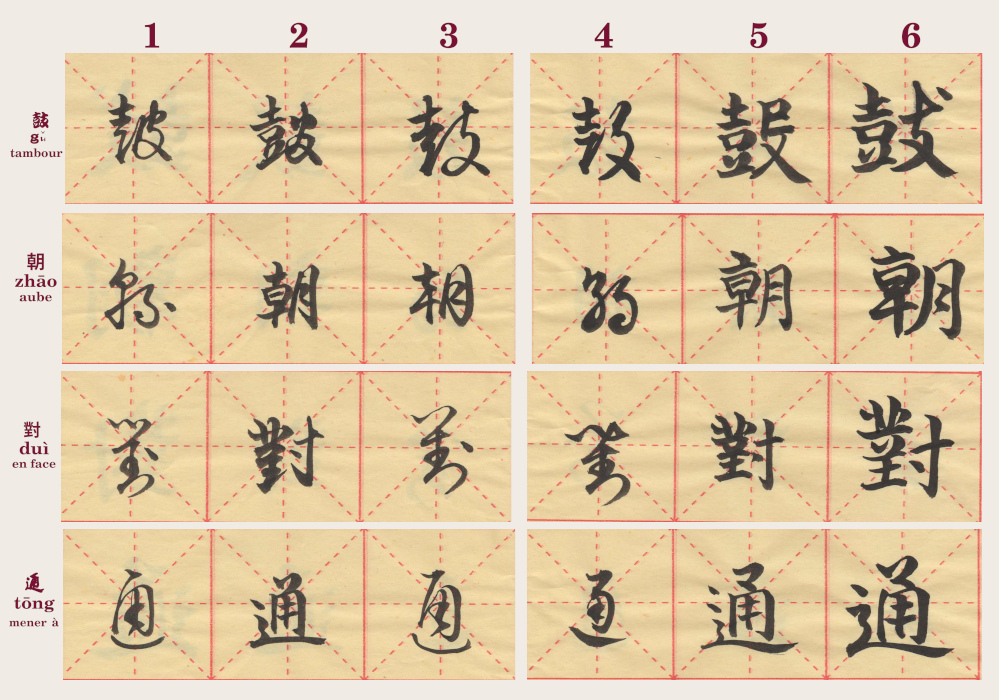 1 2 3 4 5 6
鼓 gǔ tambour
鼓 鼓 鼓 鼓 鼓 鼓
朝 zhāo aube
朝 朝 朝 朝 朝 朝
對 duì en face
對 對 對 對 對 對
通 tōng mener à
通 通 通 通 通 通